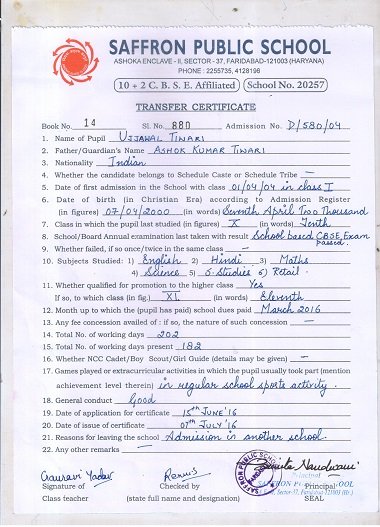 SAFFRON PUBLIC SCHOOL
ASHOKA ENCLAVE - II, SECTOR - 37, FARIDABAD-121003 (HARYANA)
PHONE : 2255735, 4128196
10 + 2 C. B. S. E. Affiliated School No. 20257
TRANSFER CERTIFICATE
Book No. 14 Sl. No. 880 Admission No. D/580/04
1. Name of Pupil UJJAWAL TIWARI
2. Father/Guardian's Name ASHOK KUMAR TIWARI
3. Nationality Indian
4. Whether the candidate belongs to Schedule Caste or Schedule Tribe —
5. Date of first admission in the School with class 01/04/04 in class I
6. Date of birth (in Christian Era) according to Admission Register
(in figures) 07/04/2000 (in words) Seventh April Two Thousand
7. Class in which the pupil last studied (in figures) X (in words) Tenth
8. School/Board Annual examination last taken with result School based CBSE Exam passed.
9. Whether failed, if so once/twice in the same class —
10. Subjects Studied : 1) English 2) Hindi 3) Maths
4) Science 5) S. Studies 6) Retail.
11. Whether qualified for promotion to the higher class Yes
If so, to which class (in fig.) XI (in words) Eleventh
12. Month up to which the (pupil has paid) school dues paid March 2016
13. Any fee concession availed of : if so, the nature of such concession —
14. Total No. of working days 202
15. Total No. of working days present 182
16. Whether NCC Cadet/Boy Scout/Girl Guide (details may be given) —
17. Games played or extracurricular activities in which the pupil usually took part (mention
achievement level therein) in regular school sports activity.
18. General conduct Good
19. Date of application for certificate 15th JUNE'16
20. Date of issue of certificate 07th JULY'16
21. Reasons for leaving the school Admission in another school.
22. Any other remarks —
Gauravi Yadav
Signature of Checked by Principal
Class teacher (state full name and designation) SEAL
SAFFRON PUBLIC SCHOOL
Principal
Sector-37, Faridabad-121003 (Hr.)